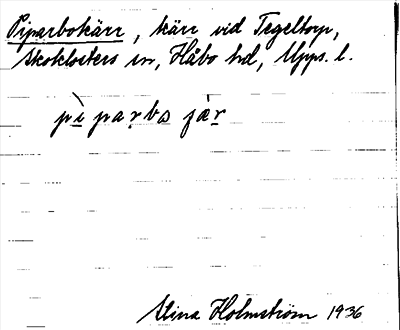 Piparbokärr, kärr vid Tegeltorp,
Skoklosters sn, Håbo hd, Upps. l.
pìparbo jär
Stina Holmström 1936